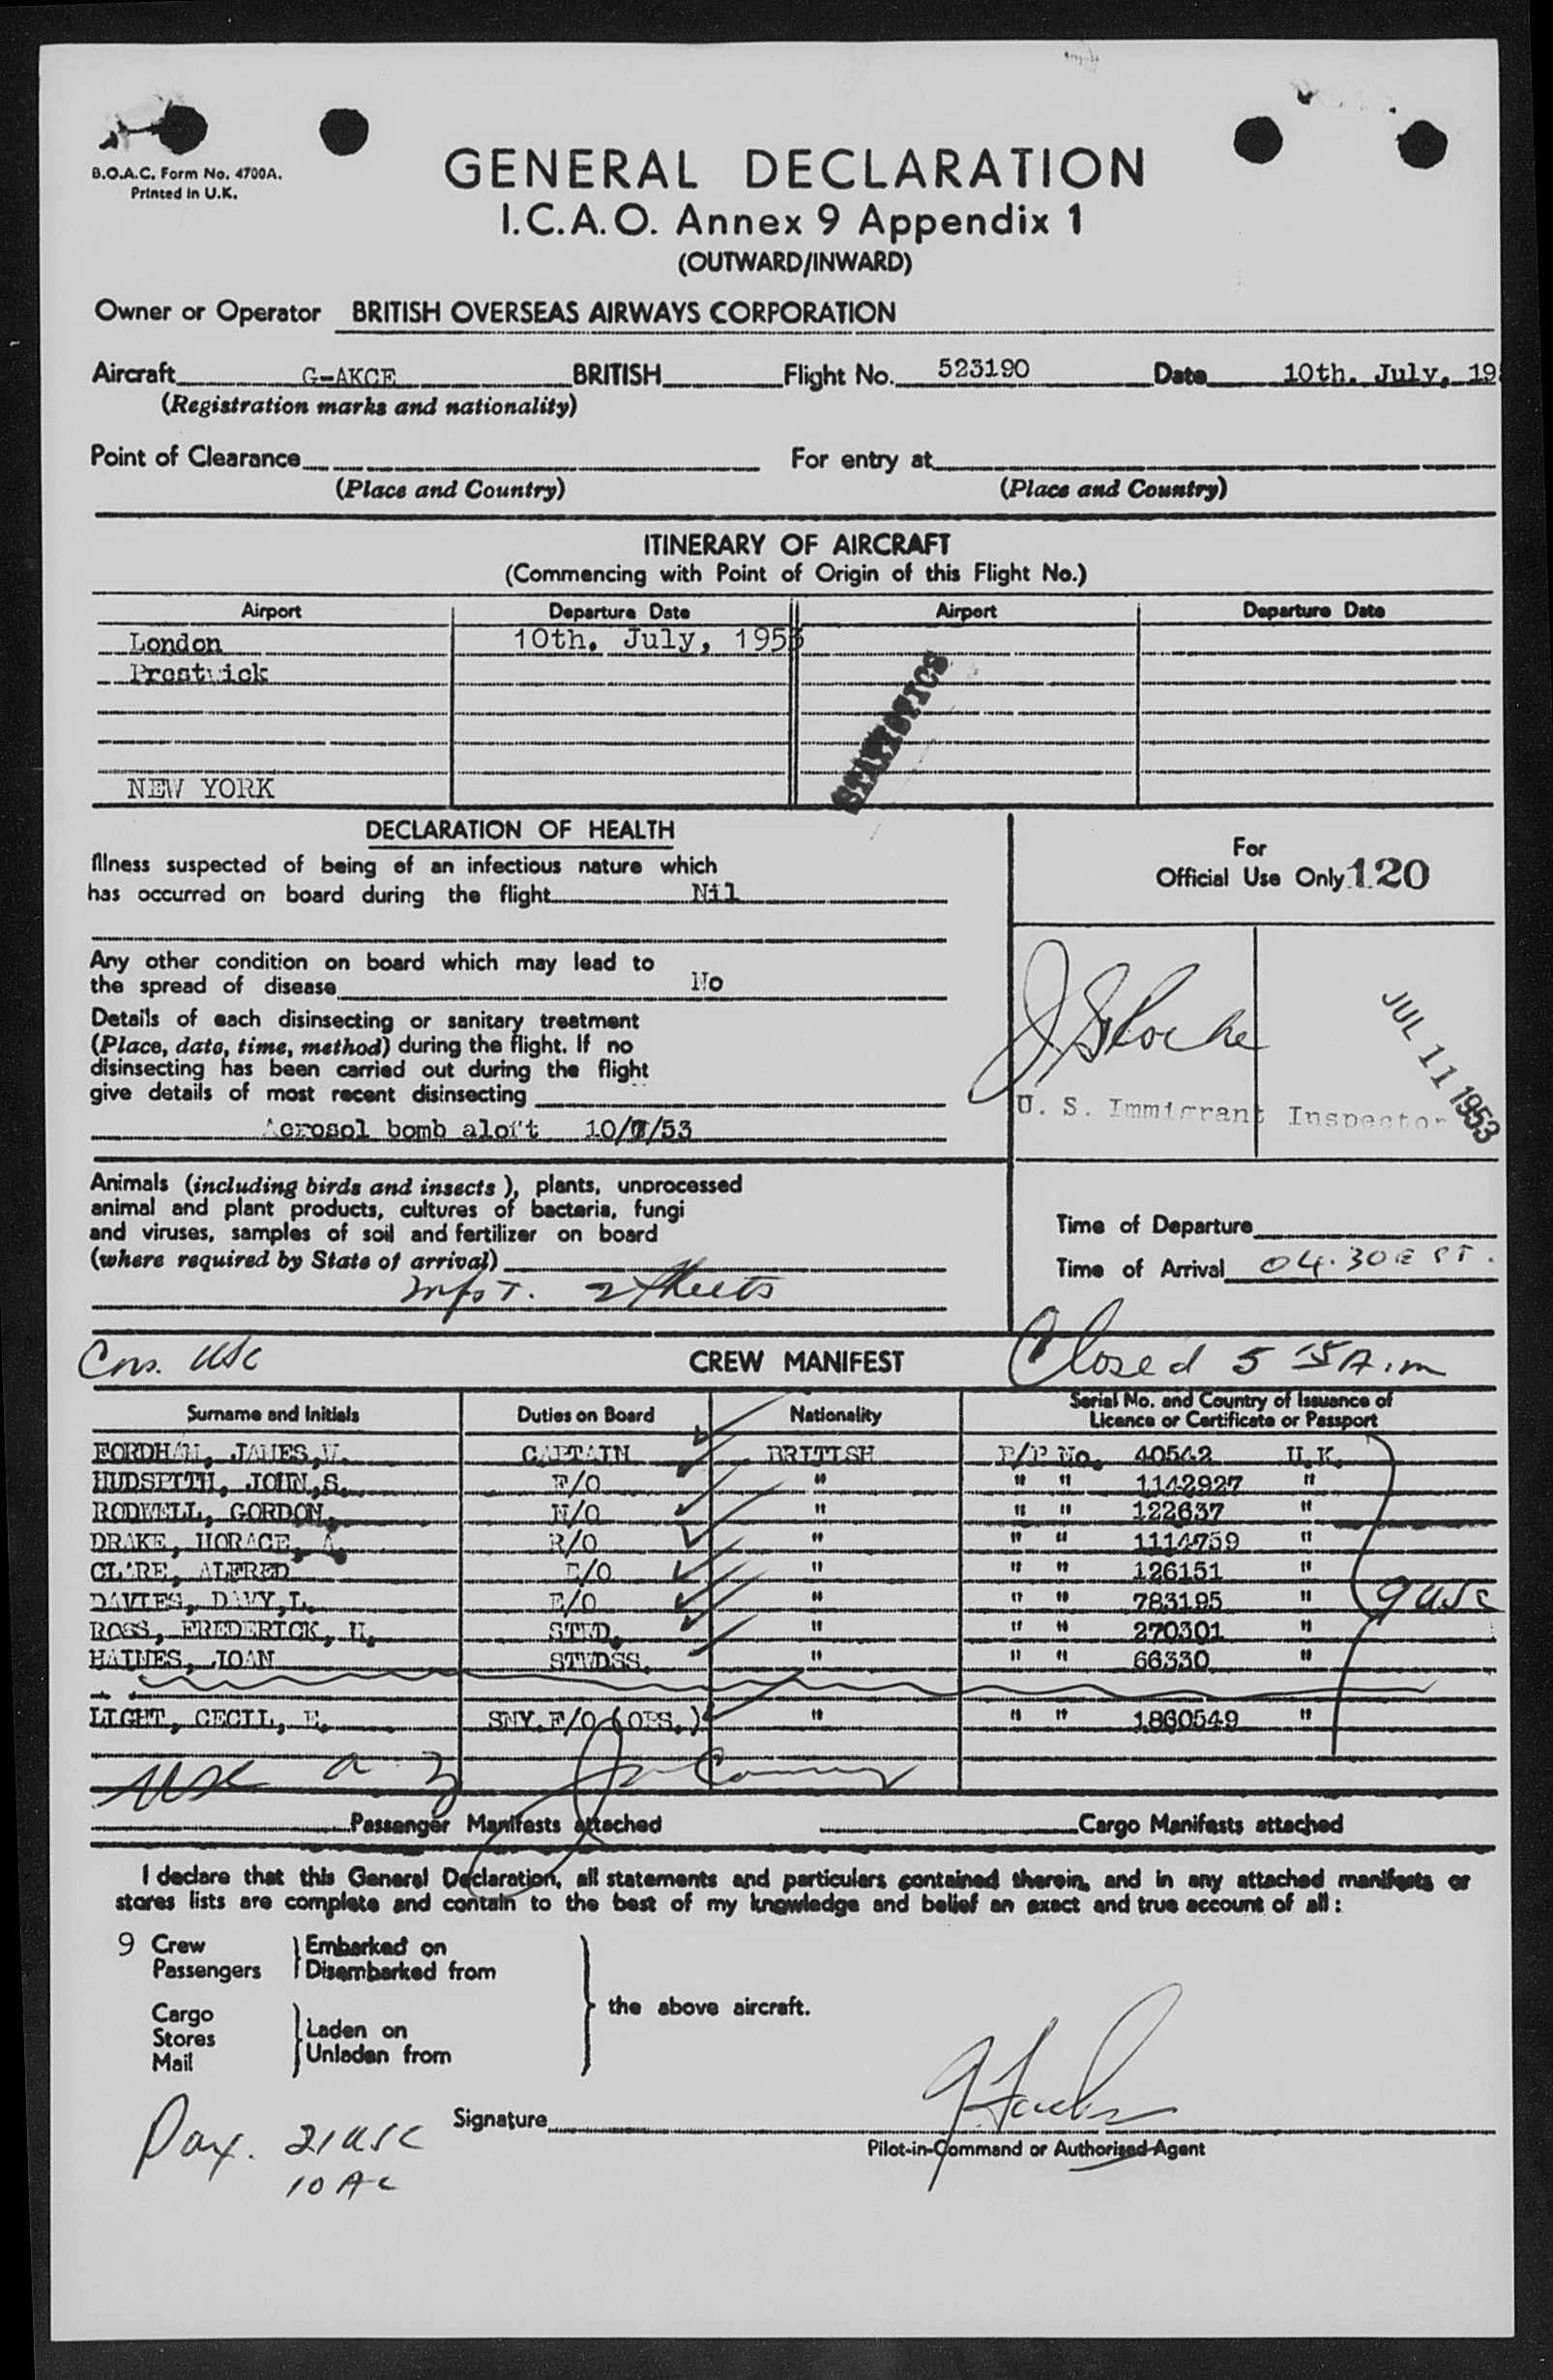 B.O.A.C. Form No. 4700A.
Printed in U.K.
GENERAL DECLARATION
I.C.A.O. Annex 9 Appendix 1
(OUTWARD/INWARD)
Owner or Operator BRITISH OVERSEAS AIRWAYS CORPORATION
Aircraft G-AKCE BRITISH Flight No. 523190 Date 10th. July, 19
(Registration marks and nationality)
Point of Clearance For entry at
(Place and Country) (Place and Country)
ITINERARY OF AIRCRAFT
(Commencing with Point of Origin of this Flight No.)
Airport Departure Date Airport Departure Date
London 10th. July, 1953
Prestwick
STATISTICS
NEW YORK
DECLARATION OF HEALTH
Illness suspected of being of an infectious nature which
has occurred on board during the flight Nil
For
Official Use Only 120
Any other condition on board which may lead to
the spread of disease No
Details of each disinsecting or sanitary treatment
(Place, date, time, method) during the flight. If no
disinsecting has been carried out during the flight
give details of most recent disinsecting
Aerosol bomb aloft 10/7/53
JUL 11 1953
U. S. Immigrant Inspector
Animals (including birds and insects), plants, unprocessed
animal and plant products, cultures of bacteria, fungi
and viruses, samples of soil and fertilizer on board
(where required by State of arrival)
2 sheets
Time of Departure
Time of Arrival 04.30 EST.
Closed 5 15 A.m
CREW MANIFEST
Surname and Initials Duties on Board Nationality Serial No. and Country of Issuance of
Licence or Certificate or Passport
FORDHAM, JAMES,W. CAPTAIN BRITISH P/P No. 40542 U.K.
HUDSPITH, JOHN,S. F/O " " " 1142927 "
RODWELL, GORDON. N/O " " " 122637 "
DRAKE, HORACE, A. R/O " " " 1114759 "
CLARE, ALFRED E/O " " " 126151 "
DAVIES, DAVY,L. E/O " " " 783195 " 9 USC
ROSS, FREDERICK, H. STWD. " " " 270301 "
HAINES, JOAN STWDSS. " " " 66330 "
LIGHT, CECIL, E. SNY.F/O (OPS.) " " " 1860549 "
Passenger Manifests attached Cargo Manifests attached
I declare that this General Declaration, all statements and particulars contained therein, and in any attached manifests or
stores lists are complete and contain to the best of my knowledge and belief an exact and true account of all:
9 Crew Embarked on
Passengers Disembarked from
the above aircraft.
Cargo
Stores Laden on
Mail Unladen from
Signature
Pilot-in-Command or Authorised Agent
Pax. 21 USC
10 A-C